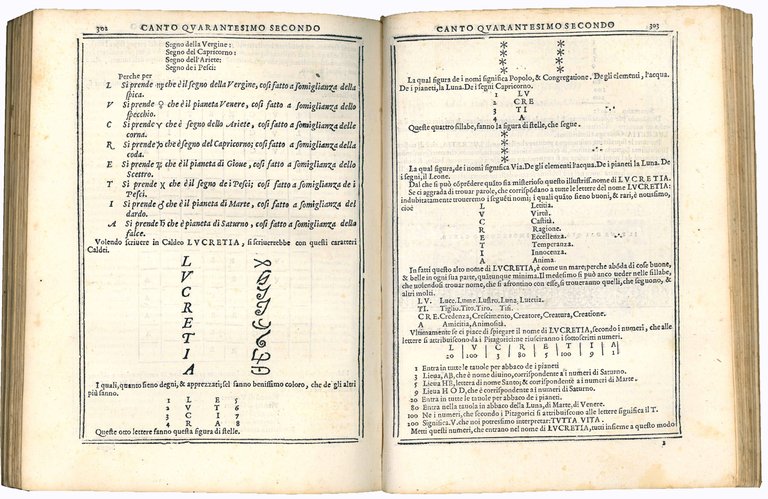 302 CANTO QVARANTESIMO SECONDO
Segno della Vergine:
Segno del Capricorno:
Segno dell'Ariete:
Segno de i Pesci:
Perche per
L Si prende ♍ che è il segno della Vergine, così fatto a somiglianza della
spica.
V Si prende ♀ che è il pianeta Venere, così fatto a somiglianza dello
specchio.
C Si prende ♈ che è segno dello Ariete, così fatto a somiglianza delle
corna.
R Si prende ♑ che è segno del Capricorno; così fatto a somiglianza della
coda.
E Si prende ♃ che è il pianeta di Gioue, così fatto a somiglianza dello
Scettro.
T Si prende ♓ che è il segno de i Pesci; così fatto a somiglianza de i
Pesci.
I Si prende ♂ che è il pianeta di Marte, così fatto a somiglianza del
dardo.
A Si prende ♄ che è il pianeta di Saturno, così fatto a somiglianza della
falce.
Volendo scriuere in Caldeo LVCRETIA, si scriuerebbe con questi caratteri
Caldei.
L
V
C
R
E
T
I
A
I quali, quanto sieno degni, & apprezzati; sel sanno benissimo coloro, che de gli altri
più sanno.
1 L E 5
2 V T 6
3 C I 7
4 R A 8
Queste otto lettere fanno questa figura di stelle.
CANTO QVARANTESIMO SECONDO 303
* *
* *
* *
* *
La qual figura de i nomi significa Popolo, & Congregatione. De gli elementi, l'acqua.
De i pianeti, la Luna. De i segni Capricorno.
1 LV
2 CRE
3 TI
4 A
Queste quattro sillabe, fanno la figura di stelle, che segue.
*
*
*
*
La qual figura, de i nomi significa Via. De gli elementi l'acqua. De i pianeti la Luna. De
i segni, il Leone.
Dal che si può cōprēdere quāto sia misterioso questo illustriss. nome di LVCRETIA.
Se si aggrada di trouar parole, che corrispōdano a tutte le lettere del nome LVCRETIA:
indubitatamente troueremo i seguēti nomi; i quali quāto sieno buoni, & rari, è notissimo,
cioè
L Letitia.
V Virtù.
C Castità.
R Ragione.
E Eccellenza.
T Temperanza.
I Innocenza.
A Anima.
In fatti questo alto nome di LVCRETIA, è come un mare; perche abōda di cose buone,
& belle in ogni sua parte, quātunque minima. Il medesimo si può anco ueder nelle sillabe,
che uolendosi trouar nomi, che si affrontino con esse, si troueranno quelli, che seguono, &
altri molti.
LV. Luce. Lume. Lustro. Luna. Lutetia.
TI. Tiglio. Tito. Tiro. Tisi.
CRE. Credenza, Crescimento, Creatore, Creatura, Creatione.
A Amicitia, Animosità.
Ultimamente se ci piace di spiegare il nome di LVCRETIA, secondo i numeri, che alle
lettere si attribuiscono da i Pitagorici: ne riusciranno i sottoscritti numeri.
L | V | C | R | E | T | I | A
20 | 100 | 3 | 80 | 5 | 100 | 9 | 1
1 Entra in tutte le tauole per abbaco de i pianeti
3 Lieua, AB, che è nome diuino, corrispondente a i numeri di Saturno.
5 Lieua HE, lettera di nome Santo; & corrispondente a i numeri di Marte.
9 Lieua HOD, che è corrispondente a i numeri di Saturno.
20 Entra in tutte le tauole per abbaco de i pianeti.
80 Entra nella tauola in abbaco della Luna, di Marte, di Venere.
100 Ne i numeri, che secondo i Pitagorici si attribuiscono alle lettere significa il T.
200 Significa. V. che noi potressimo interpretar: TVTTA VITA.
Metti questi numeri, che entrano nel nome di LVCRETIA, tutti insieme a questo modo